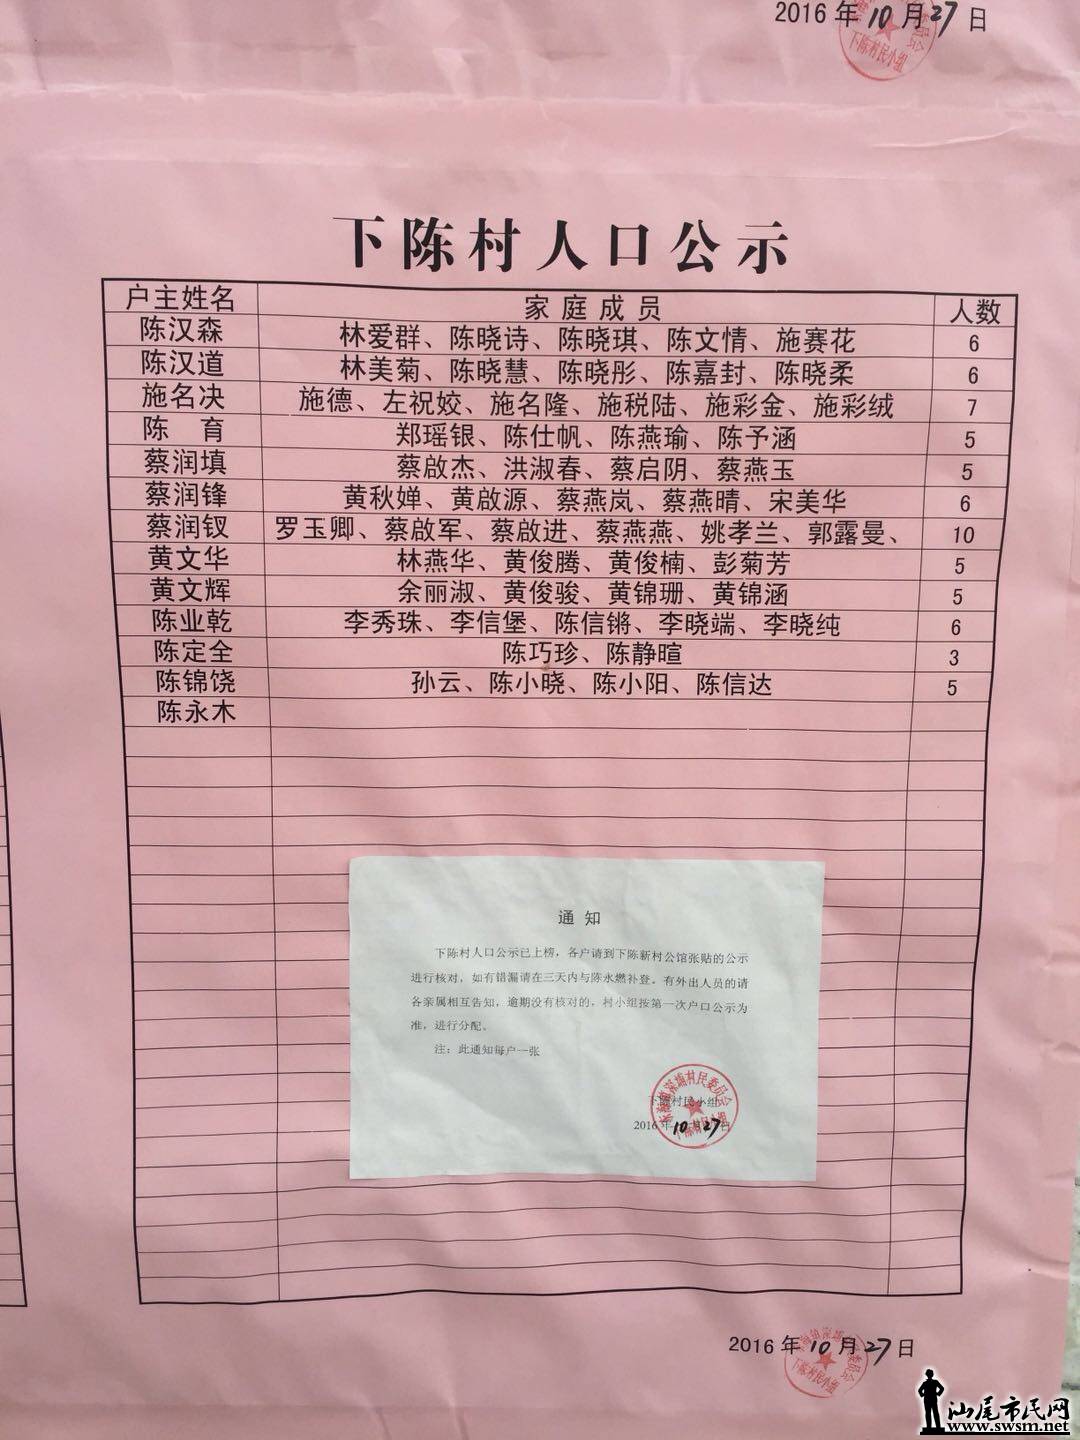 2016 年 10 月 27 日
下陈村民小组
下陈村人口公示
户主姓名 家庭成员 人数
陈汉森 林爱群、陈晓诗、陈晓琪、陈文情、施赛花 6
陈汉道 林美菊、陈晓慧、陈晓彤、陈嘉封、陈晓柔 6
施名决 施德、左祝姣、施名隆、施税陆、施彩金、施彩绒 7
陈 育 郑瑶银、陈仕帆、陈燕瑜、陈予涵 5
蔡润填 蔡啟杰、洪淑春、蔡启阴、蔡燕玉 5
蔡润锋 黄秋婵、黄啟源、蔡燕岚、蔡燕晴、宋美华 6
蔡润钗 罗玉卿、蔡啟军、蔡啟进、蔡燕燕、姚孝兰、郭露曼、 10
黄文华 林燕华、黄俊腾、黄俊楠、彭菊芳 5
黄文辉 余丽淑、黄俊骏、黄锦珊、黄锦涵 5
陈业乾 李秀珠、李信堡、陈信锵、李晓端、李晓纯 6
陈定全 陈巧珍、陈静暄 3
陈锦饶 孙云、陈小晓、陈小阳、陈信达 5
陈永木
通 知
下陈村人口公示已上榜，各户请到下陈新村公馆张贴的公示
进行核对，如有错漏请在三天内与陈水燃补登。有外出人员的请
各亲属相互告知，逾期没有核对的，村小组按第一次户口公示为
准，进行分配。
注：此通知每户一张
下陈村民小组
2016 年 10 月 27 日
2016 年 10 月 27 日
下陈村民小组
汕尾市民网
www.swsm.net